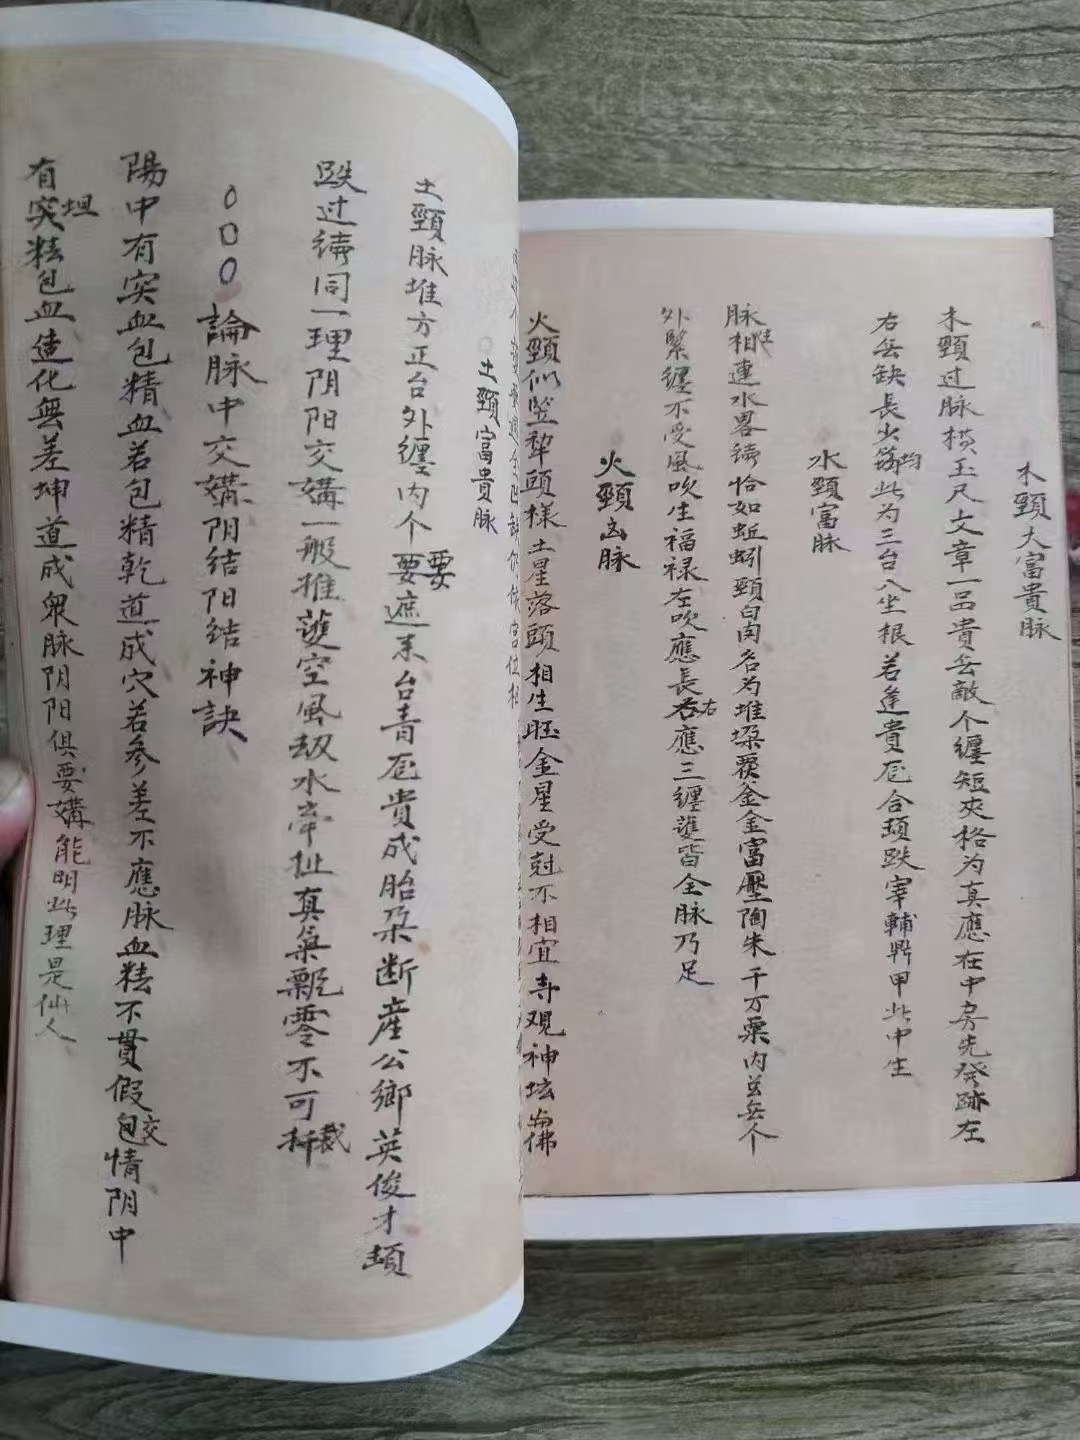 木頸大富貴脉
木頸过脉横玉尺文章一品貴岳敵个纏短夾格为真應在中房先癹跡左
右岳缺長少筠均此为三台入坐根若逢貴卮合頭跌宰輔鼎甲此中生
水頸富脉
脉相連水畧徛恰如蚯蚓頸白肉名为堆垜覆釜金富壓陶朱千万粟内並岳个
外緊纏不受風吹生福禄左吹應長右應三纏護皆全脉乃足
火頸凶脉
火頸似竖犂頭樣土星落頭相生旺金星受尅不相宜寺观神坛为佛
土頸富貴脉
土頸脉堆方正台外纏内个要遮来台青卮貴成胎朶断産公鄉英俊才頭
跌过徛同一理阴阳交媾一般推護空风刼水牵扯真氣飄零不可裁
○○○論脉中交媾阴结阳结神訣
陽中有突血包精血若包精乾道成穴若参差不應脉血精不貫假交情阴中
有坦精包血造化無差坤道成衆脉阴阳俱要媾能明此理是仙人